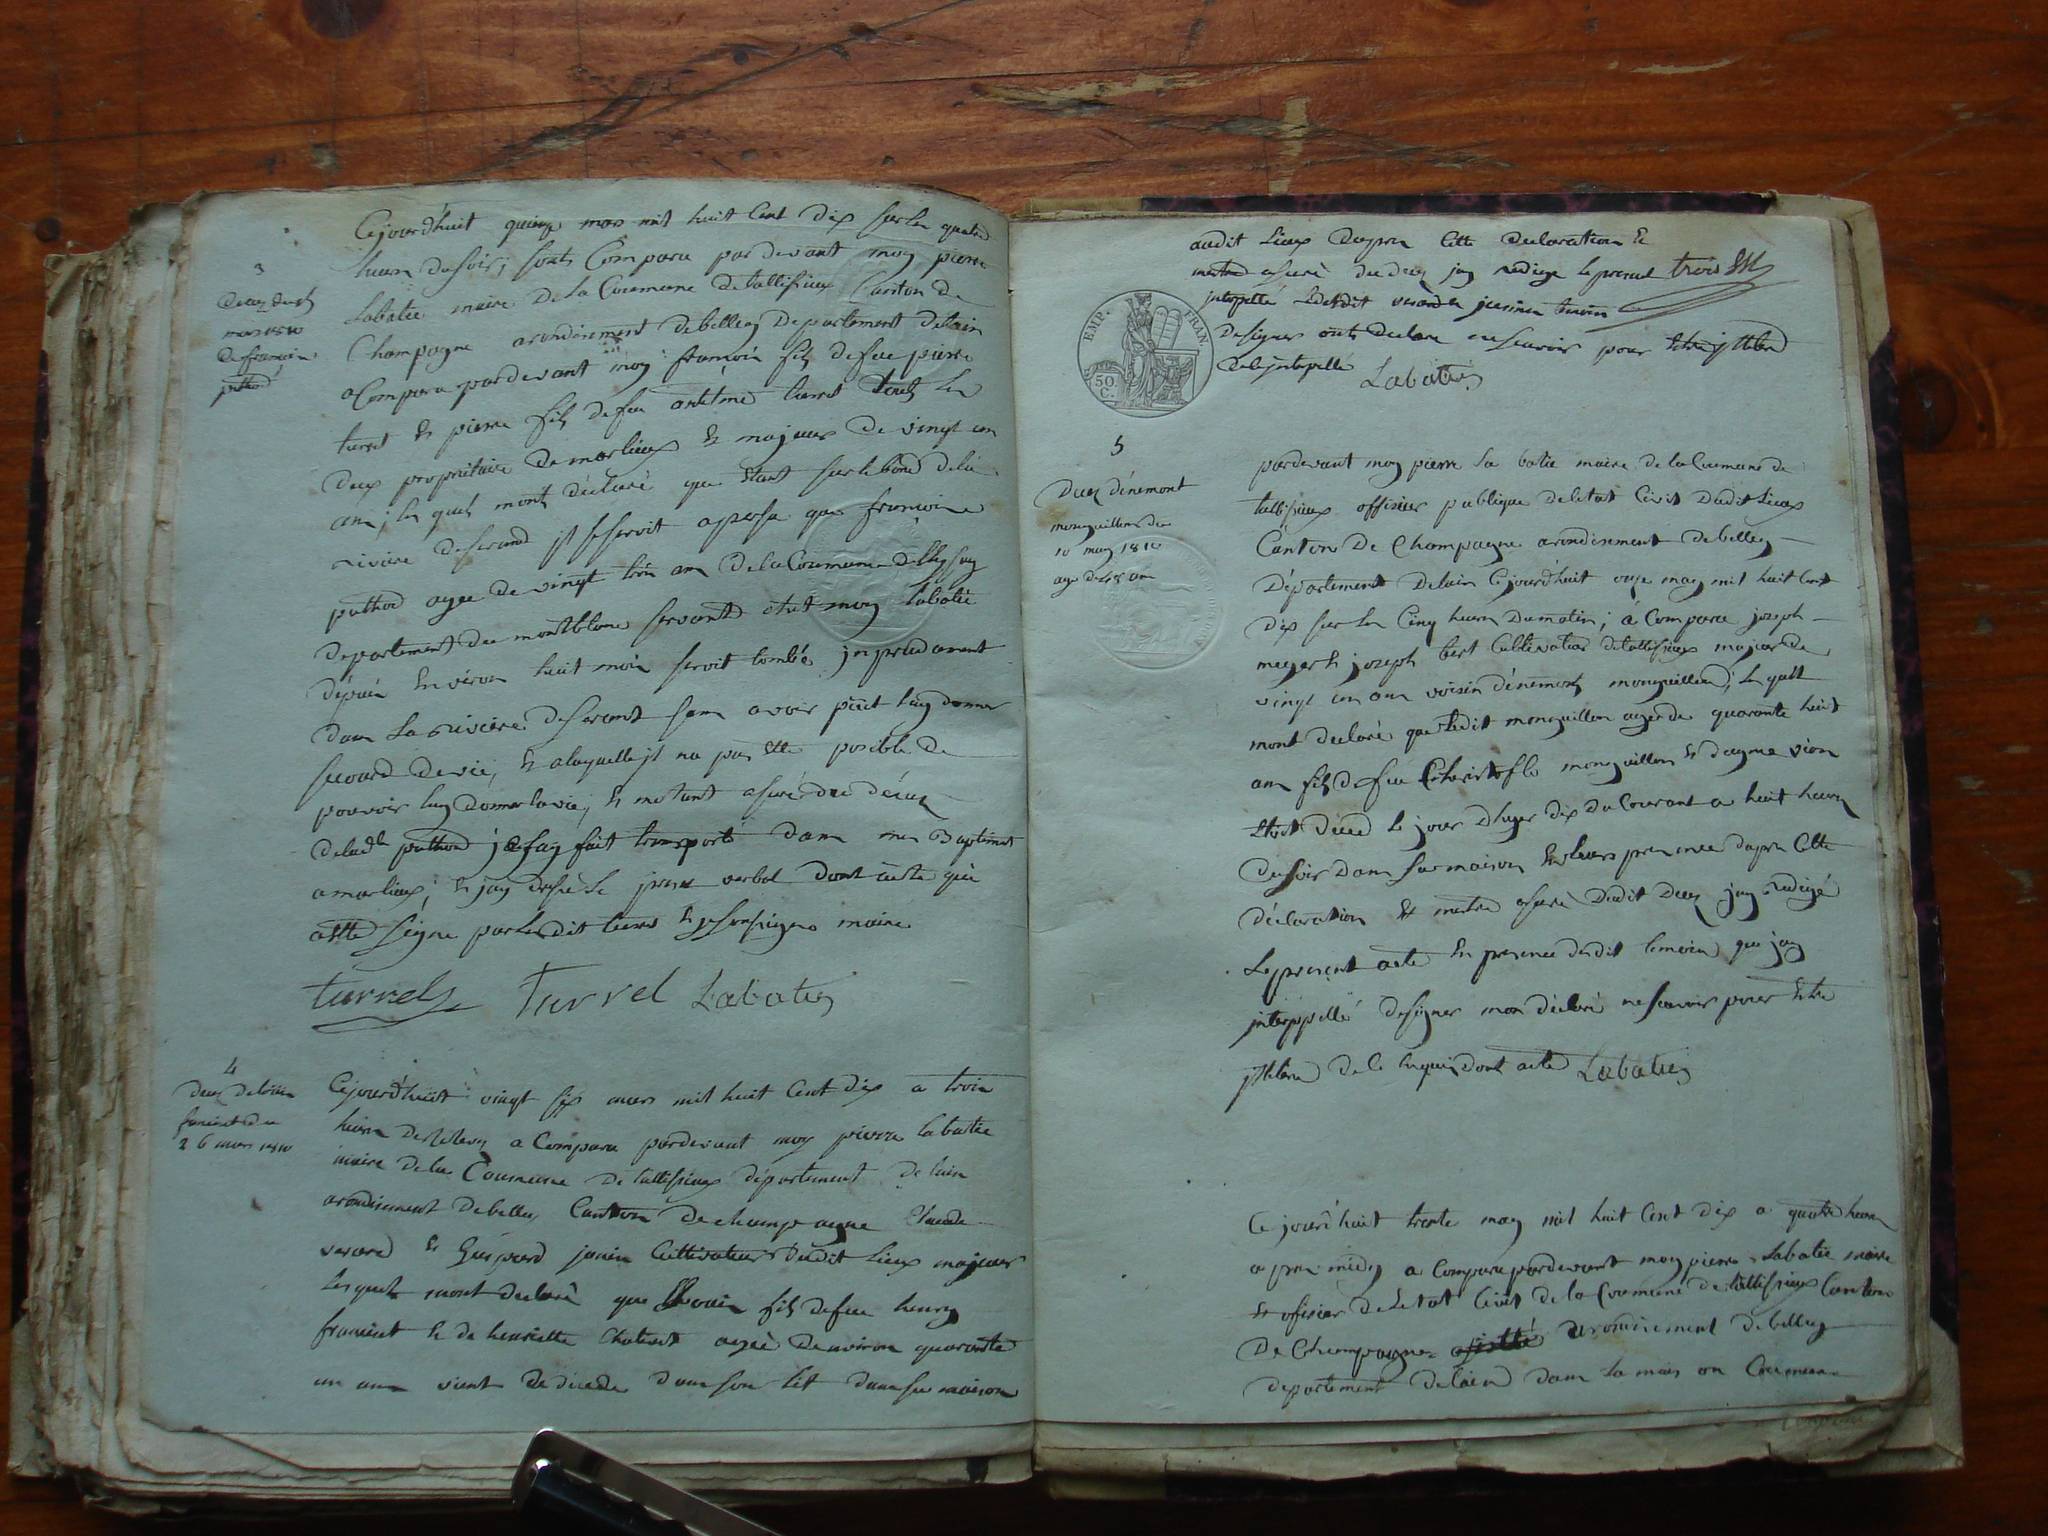 Cejourdhuit quinze mars mil huit Cent dix sur les quatre
heures du soir; sonts Comparu pardevant moy pierre
Labatie maire de la Coumune de tallissieux Canton de
Champagne arondisement de belley Departement delain
a Comparu pardevant moy françois fils de feu pierre
turrel et pierre fils de feu antelme turrel touts les
deux propriétaire de marlieux et majeurs de vingt un
ans; les quels monts déclaré que étant sur le bord de la
rivière de serand
puthod agee de vingt trois ans de la Coumune
departement du montblanc servante chez moy Labatie
dépuis environ huit mois seroit tombée jnprudament
dans la rivière de serant sans avoir peut luy donner
secourd de vie; et a laquelle jl na pas été posible de
pouvoir luy donner la vie; et metant asuré du décès
de lad. puthod je lay fait transporté dans mes Baptiment
a marlieux; et jay dressé le present verbal dont acte qui
a été signe par les dit turrel et je soussigné maire
turrel Turrel Labatie
3
Deces du 15
mars 1810
de françoise
puthod
4
Deces de louis
franient du
26 mars 1810
Cejourdhuit vingt six mars mil huit Cent dix a trois
heures a Comparu pardevant moy pierre labatie
maire de la Coumune de tallissieux département de lain
arondisement de belley Canton de champagne Claude
verard et Guspard janin Cultivateurs dudit Lieux majeurs
lesquels monts declaré que louis fils de feu henry
franient et de henriette agée denviron quarante
un ans vient de déceder dans son lit dans sa maison
audit Lieux dapres Cette declaration et
asuré du deces jay rediger le present
jnterpellé verard et janin
de signer onts declare ne scavoir pour
de le jnterpellé
Labatie
EMP. FRAN.
50
C.
5
Deces dénemont
monguillon du
10 may 1810
age de 48 ans
pardevant moy pierre la batie maire de la Coumune de
tallissieux officier publique de letat Civil dudit Lieux
Canton De Champagne arondisement de belley
Département Delain Cejourdhuit onze may mil huit Cent
dix sur les Cinq heures du matin; a Comparu joseph
meyer et joseph bert Cultivateur de tallissieux majeur de
vingt un ans voisin dénemont monguillon; les quels
mont declaré que ledit monguillon agee de quarante huit
ans fils de feu Christofle monguillon et dagnes vion
étoit décédé le jour dhyer dix du Courant a huit heures
du soir dans sa maison en leurs presence dapres Cette
déclaration et metre asuré dudit Deces jay rédigé
Le present acte en presence desdit temoins que jay
jnterppellé de signer mon déclaré ne scavoir pour être
jlleteré de le requis dont acte Labatie
Ce jourd'huit trente may mil huit Cent dix a quatre heures
a pres midy a Comparu pardevant moy pierre Labatie maire
et ofisier de létat Civil de la Coumune de tallissieux Canton
De Champagne arondisement de belley
departement delain dans la mais on Coumune